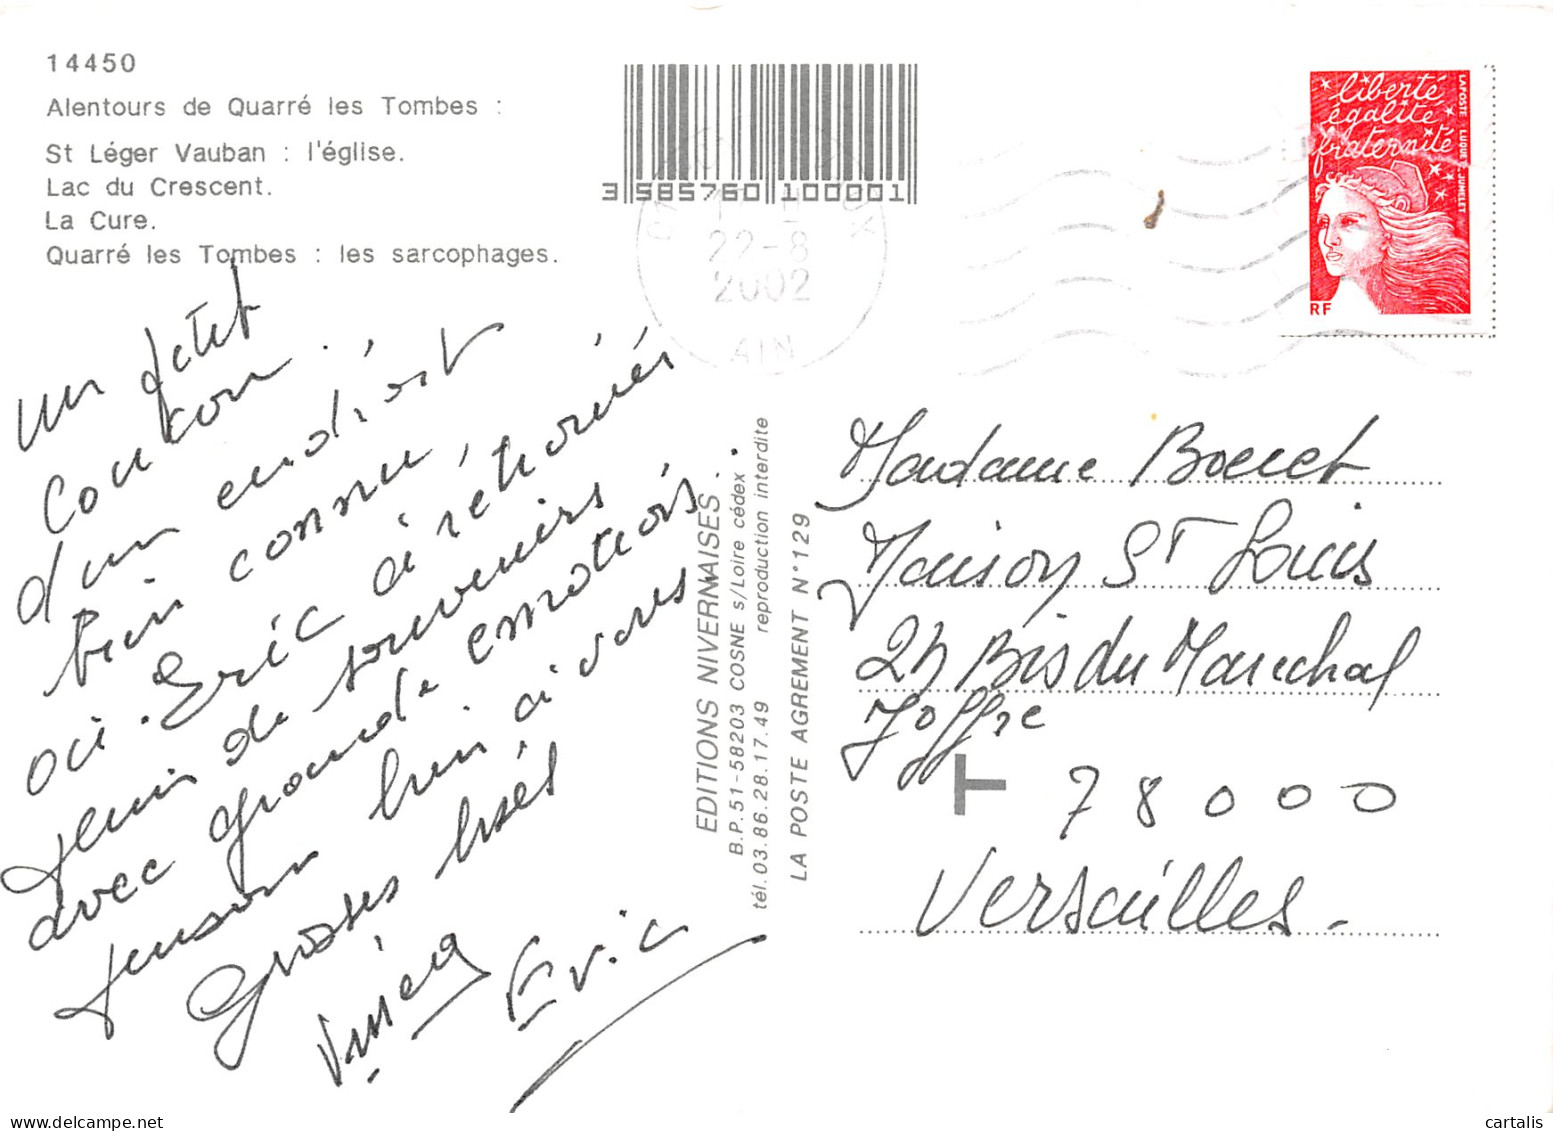 14450
Alentours de Quarré les Tombes :
St Léger Vauban : l'église.
Lac du Crescent.
La Cure.
Quarré les Tombes : les sarcophages.
3 585760 100001
22-8
2002
AIN
liberté
égalité
fraternité
LAPOSTE LUQUET JUMELET
RF
un petit
Coucou
d'un endroit
bien connu,
où Eric a retrouvés
plein de souvenirs
avec grande émotions.
pensons bien à vous
Grosses bises
Eric
EDITIONS NIVERNAISES
B.P. 51-58203 COSNE s/Loire cédex
tél. 03.86.28.17.49 reproduction interdite
LA POSTE AGREMENT N°129
Madame
Maison St Louis
Bis du Marechal
Joffre
T
78000
Versailles.
cartalis